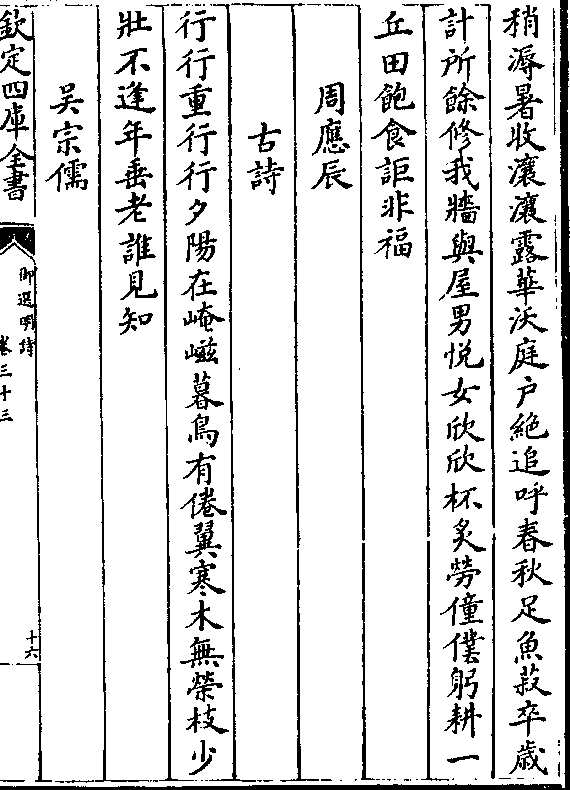 稍溽暑收瀼瀼露華沃庭户絶追呼春秋足魚菽卒歳
計所餘修我牆與屋男悦女欣欣杯炙勞僮僕躬耕一
丘田飽食詎非福
周應辰
古詩
行行重行行夕陽在崦嵫暮鳥有倦翼寒木無榮枝少
壯不逢年垂老誰見知
吴宗儒
欽定四庫全書
御選明詩
卷三十三
十六